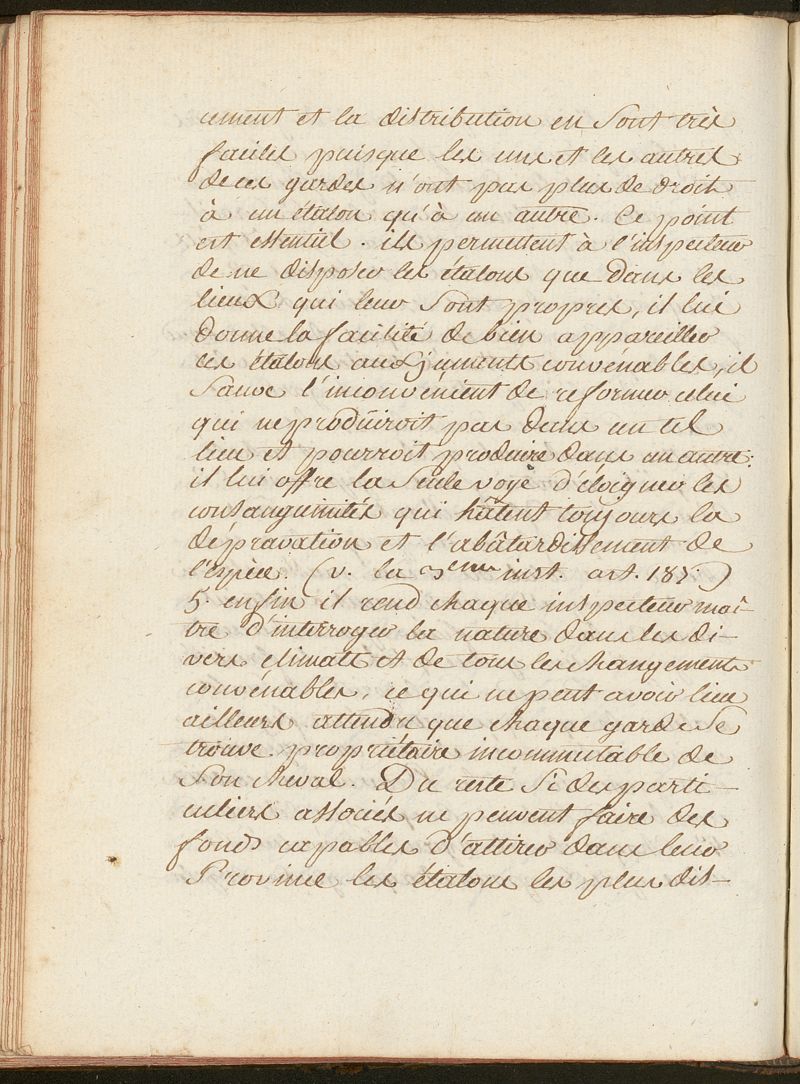 cement et la distribution en sont très
faciles puisque les uns et les autres
de ces gardes n'ont pas plus de droit
à un étalon qu'à un autre. Ce point
est essentiel. ils permettent à l'inspecteur
de ne disposer les étalons que dans les
lieux qui leur sont propres, il lui
donne la facilité de bien appareiller
ces étalons aux juments convénables, il
sauve l'inconvénient de reformer celui
qui ne produiroit pas dans un tel
lieu et pourroit produire dans un autre:
il lui offre la seule voye d'éloigner les
consanguinités qui hâtent toujours la
dépravation et l'abâtardissement de
l'espèce. (v. la 3eme inst. art. 185.)
5. enfin il rend chaque inspecteur maî-
tre d'interroger la nature dans les di-
vers climats et de tous les changements
convénables, ce qui ne peut avoir lieu
ailleurs attendu que chaque garde se
trouve propriétaire incommutable de
son cheval. Du reste si des parti-
culiers associés ne peuvent faire des
fonds capables d'attirer dans leur
Province les étalons les plus dis-